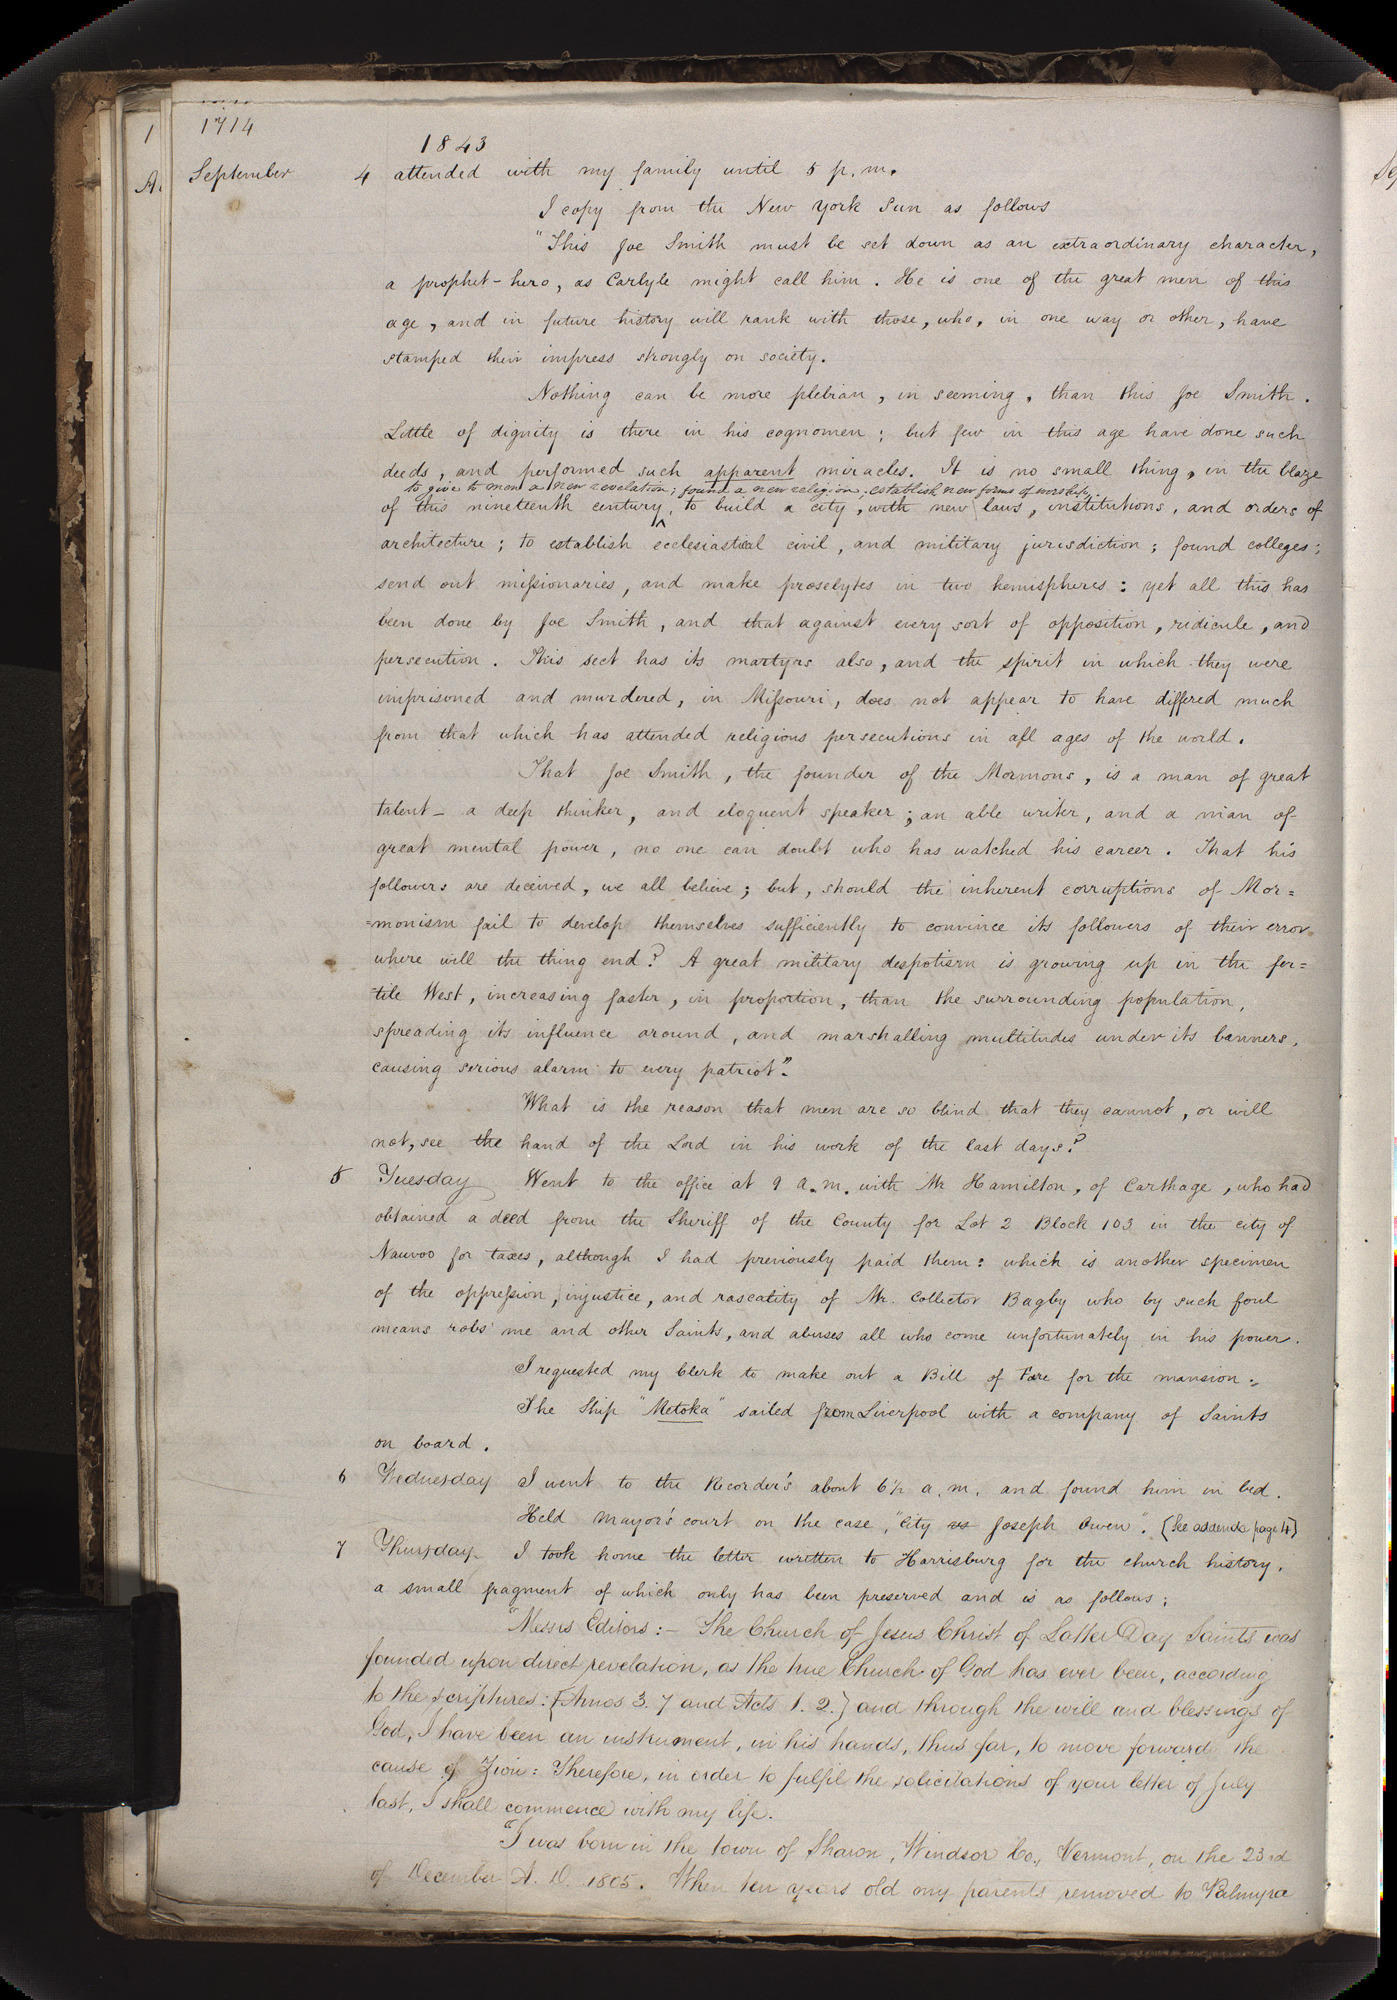 1714
1843
September 4 attended with my family until 5 p.m.
I copy from the New York Sun as follows
"This Joe Smith must be set down as an extraordinary character,
a prophet-hero, as Carlyle might call him. He is one of the great men of this
age, and in future history will rank with those, who, in one way or other, have
stamped their impress strongly on society.
Nothing can be more plebian, in seeming, than this Joe Smith.
Little of dignity is there in his cognomen; but few in this age have done such
deeds, and performed such apparent miracles. It is no small thing, in the blaze
to give to men a new revelation; found a new religion; establish new forms of worship,
of this nineteenth century, ^ to build a city, with new laws, institutions, and orders of
architecture; to establish ecclesiastical civil, and military jurisdiction; found colleges;
send out missionaries, and make proselytes in two hemispheres: yet all this has
been done by Joe Smith, and that against every sort of opposition, ridicule, and
persecution. This sect has its martyrs also, and the spirit in which they were
imprisoned and murdered, in Missouri, does not appear to have differed much
from that which has attended religious persecutions in all ages of the world.
That Joe Smith, the founder of the Mormons, is a man of great
talent – a deep thinker, and eloquent speaker; an able writer, and a man of
great mental power, no one can doubt who has watched his career. That his
followers are deceived, we all believe; but, should the inherent corruptions of Mor=
=monism fail to develop themselves sufficiently to convince its followers of their error
where will the thing end? A great military despotism is growing up in the fer=
=tile West, increasing faster, in proportion, than the surrounding population,
spreading its influence around, and marshalling multitudes under its banners,
causing serious alarm to every patriot".
What is the reason that men are so blind that they cannot, or will
not, see the hand of the Lord in his work of the last days?
5 Tuesday Went to the office at 9 a.m. with Mr Hamilton, of Carthage, who had
obtained a deed from the Sheriff of the County for Lot 2 Block 103 in the city of
Nauvoo for taxes, although I had previously paid them: which is another specimen
of the oppression, injustice, and rascality of Mr. Collector Bagby who by such foul
means robs me and other Saints, and abuses all who come unfortunately in his power.
I requested my Clerk to make out a Bill of Fare for the mansion:
The Ship "Metoka" sailed from Liverpool with a company of Saints
on board.
6 Wednesday I went to the Recorder's about 6½ a.m. and found him in bed.
Held Mayor's court on the case, "City vs Joseph Owen". [See addenda page 4]
7 Thursday I took home the letter written to Harrisburg for the church history,
a small fragment of which only has been preserved and is as follows;
"Messrs Editors:– The Church of Jesus Christ of Latter Day Saints was
founded upon direct revelation, as the true Church of God has ever been, according
to the scriptures: [Amos 3. 7 and Acts 1. 2.] and through the will and blessings of
God, I have been an instrument, in his hands, thus far, to move forward the
cause of Zion: Therefore, in order to fulfil the solicitations of your letter of July
last, I shall commence with my life.
"I was born in the town of Sharon, Windsor Co., Vermont, on the 23rd
of December A. D. 1805. When ten years old my parents removed to Palmyra